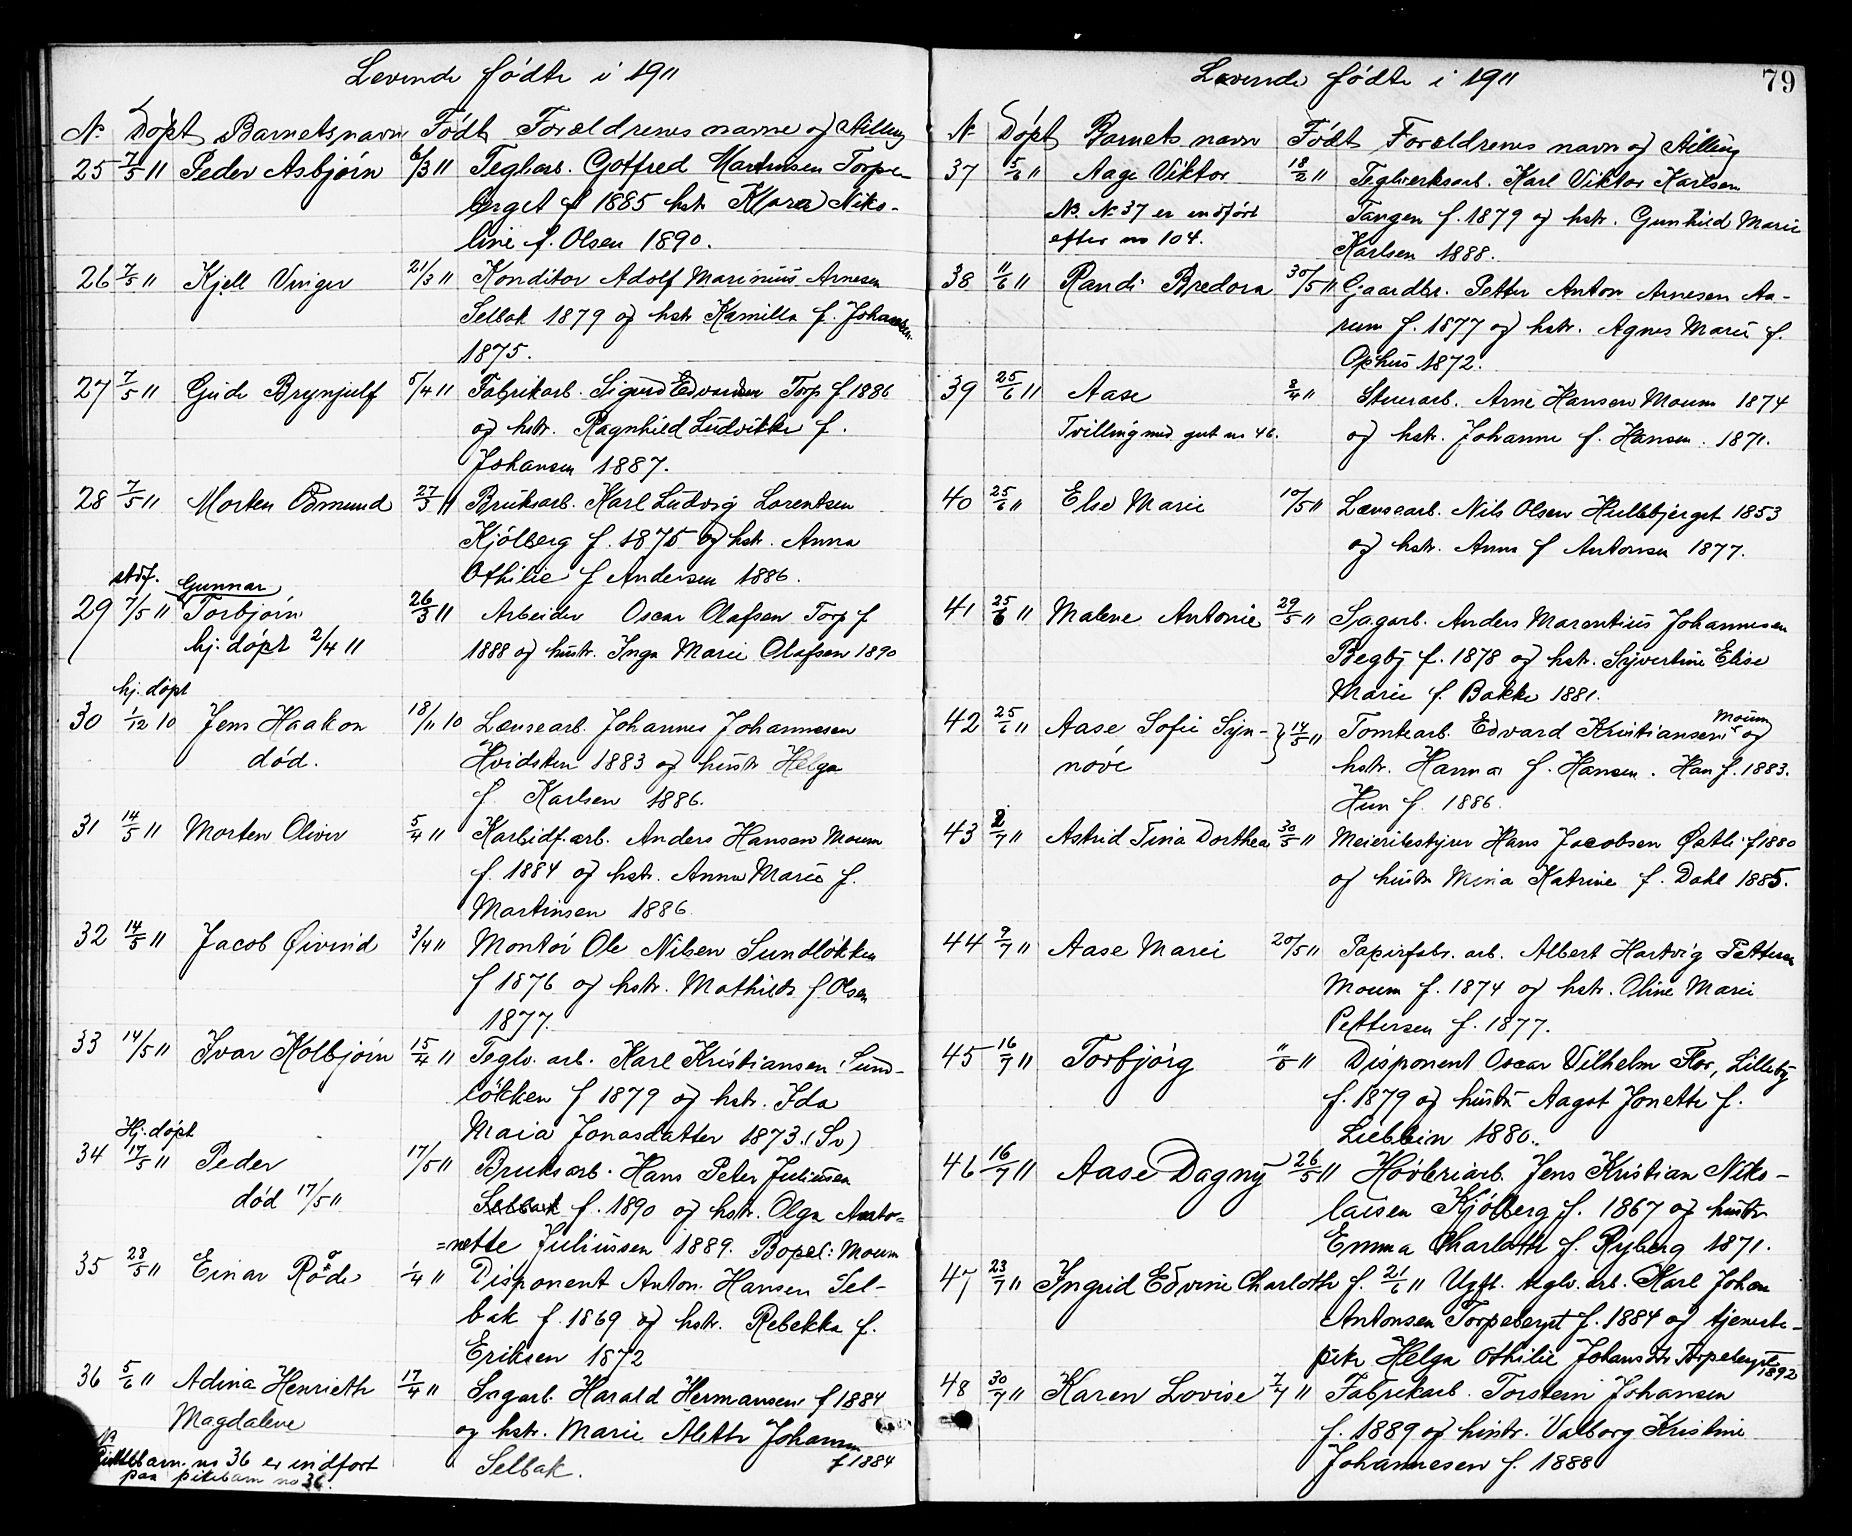 Levende fødte i 1911
N. Døpt Barnets navn Født Forældrenes navne og stilling
25 7/5 11 Peder Asbjørn 6/3 11 Teglarb. Gotfred Martinsen Torpe-
berget f 1885 hstr Klara Niko-
line f. Olsen 1890.
26 7/5 11 Kjell Vinger 21/3 11 Konditor Adolf Marinius Arnesen
Selbak 1879 og hstr Kamilla f. Johansen
1875.
27 7/5 11 Gude Brynjulf 5/4 11 Fabrikarb. Sigurd Edvardsen Torp f 1886
og hstr. Ragnhild Ludvikke f.
Johansen 1887.
28 7/5 11 Morten Osmund 27/3 11 Bruksarb. Karl Ludvig Lorentsen
Kjølberg f. 1875 og hstr. Anna
Othilie f Andersen 1886.
stdf. Gunnar
29 7/5 11 Torbjørn 26/3 11 Arbeider Oscar Olafsen Torp f
hj. døpt 2/4 11 1888 og hustr. Inga Marie Olafsen 1890
hj. døpt
30 1/12 10 Jens Haakon 18/11 10 Lensearb. Johannes Johannesen
død. Hvidsten 1883 og hustr Helga
f. Karlsen 1886.
31 14/5 11 Morten Oliver 5/4 11 Karbidf.arb. Anders Hansen Moum
f. 1884 og hstr. Anna Marie f.
Martinsen 1886
32 14/5 11 Jacob Øivind 3/4 11 Montør Ole Nilsen Sundløkken
f 1876 og hstr. Mathilde f Olsen
1877.
33 14/5 11 Ivar Kolbjørn 15/4 11 Teglv. arb. Karl Kristiansen Sund-
løkken f 1879 og hstr. Ida
Maia Jonasdatter 1873. (Sv)
Hj. døpt
34 17/5 11 Peder 17/5 11 Bruksarb. Hans Peter Juliussen
død 17/5 11 Selbak f. 1890 og hstr. Olga Anto-
=nette Juliussen 1889. Bopel: Moum
35 28/5 11 Einar Røde 1/4 11 Disponent Anton Hansen Sel-
bak f. 1869 og hstr. Rebekka f.
Eriksen 1872
36 5/6 11 Adina Henriette 17/4 11 Sagarb. Harald Hermansen f 1884
Magdalene og hstr. Marie Alette Johansen
f 1884
no 36 er indført Selbak.
paa pikebarn no 36.
79
Levende fødte i 1911
N. Døpt Barnets navn Født Forældrenes navn og stilling
37 5/6 11 Aage Viktor 18/2 11 Teglverksarb. Karl Viktor Karlsen
NB. No 37 er indført Tangen f. 1879 og hstr. Gunhild Marie
efter no 104. Karlsen 1888.
38 11/6 11 Randi Bredora 30/5 11 Gaardbr. Petter Anton Arnesen Aa-
rum f. 1877 og hstr. Agnes Marie f.
Ophus 1872.
39 25/6 11 Aase 8/4 11 Stuerarb. Arne Hansen Moum 1874
Tvilling med gut no 46. og hstr. Johanne f. Hansen. 1871.
40 25/6 11 Else Marie 10/5 11 Lensearb. Nils Olsen Hullebjerget 1853
og hstr. Anna f Antonsen 1877.
41 25/6 11 Malene Antonie 29/5 11 Sagarb. Anders Marentius Johannesen
Begby f. 1878 og hstr. Syvertine Elise
Marie f. Bakke 1881.
42 25/6 11 Aase Sofie Syn- } 14/5 11 Tomtearb. Edvard Kristiansen Moum og
nøve hstr. Hanna f. Hansen. Han f. 1883.
Hun f. 1886.
43 2/7 11 Astrid Tina Dorthea 30/5 11 Meieribestyrer Hans Jacobsen Østli f 1880
og hustr Mina Katrine f. Dahl 1885.
44 9/7 11 Aase Marie 20/5 11 Papirfabr. arb. Albert Hartvig Pettersen
Moum f. 1874 og hstr. Oline Marie
Pettersen f. 1877.
45 16/7 11 Torbjørg 11/5 11 Disponent Oscar Vilhelm Flor, Lilleby
f. 1879 og hustr Aagot Jonette f.
Lübbin 1880.
46 16/7 11 Aase Dagny 26/5 11 Høvleriarb. Jens Kristian Niko-
laisen Kjølberg f. 1867 og hustr
Emma Charlotte f. Ryberg 1871.
47 23/7 11 Ingrid Edvine Charlotte f. 21/6 11 Ugft. teglv. arb. Karl Johan
Antonsen Torpeberget f. 1884 og tjeneste-
pike Helga Othilie Johansdtr Torpeberget 1892
48 30/7 11 Karen Lovise 7/7 11 Fabrikarb. Torstein Johansen
f. 1889 og hustr. Valborg Kristine
Johannesen f. 1888